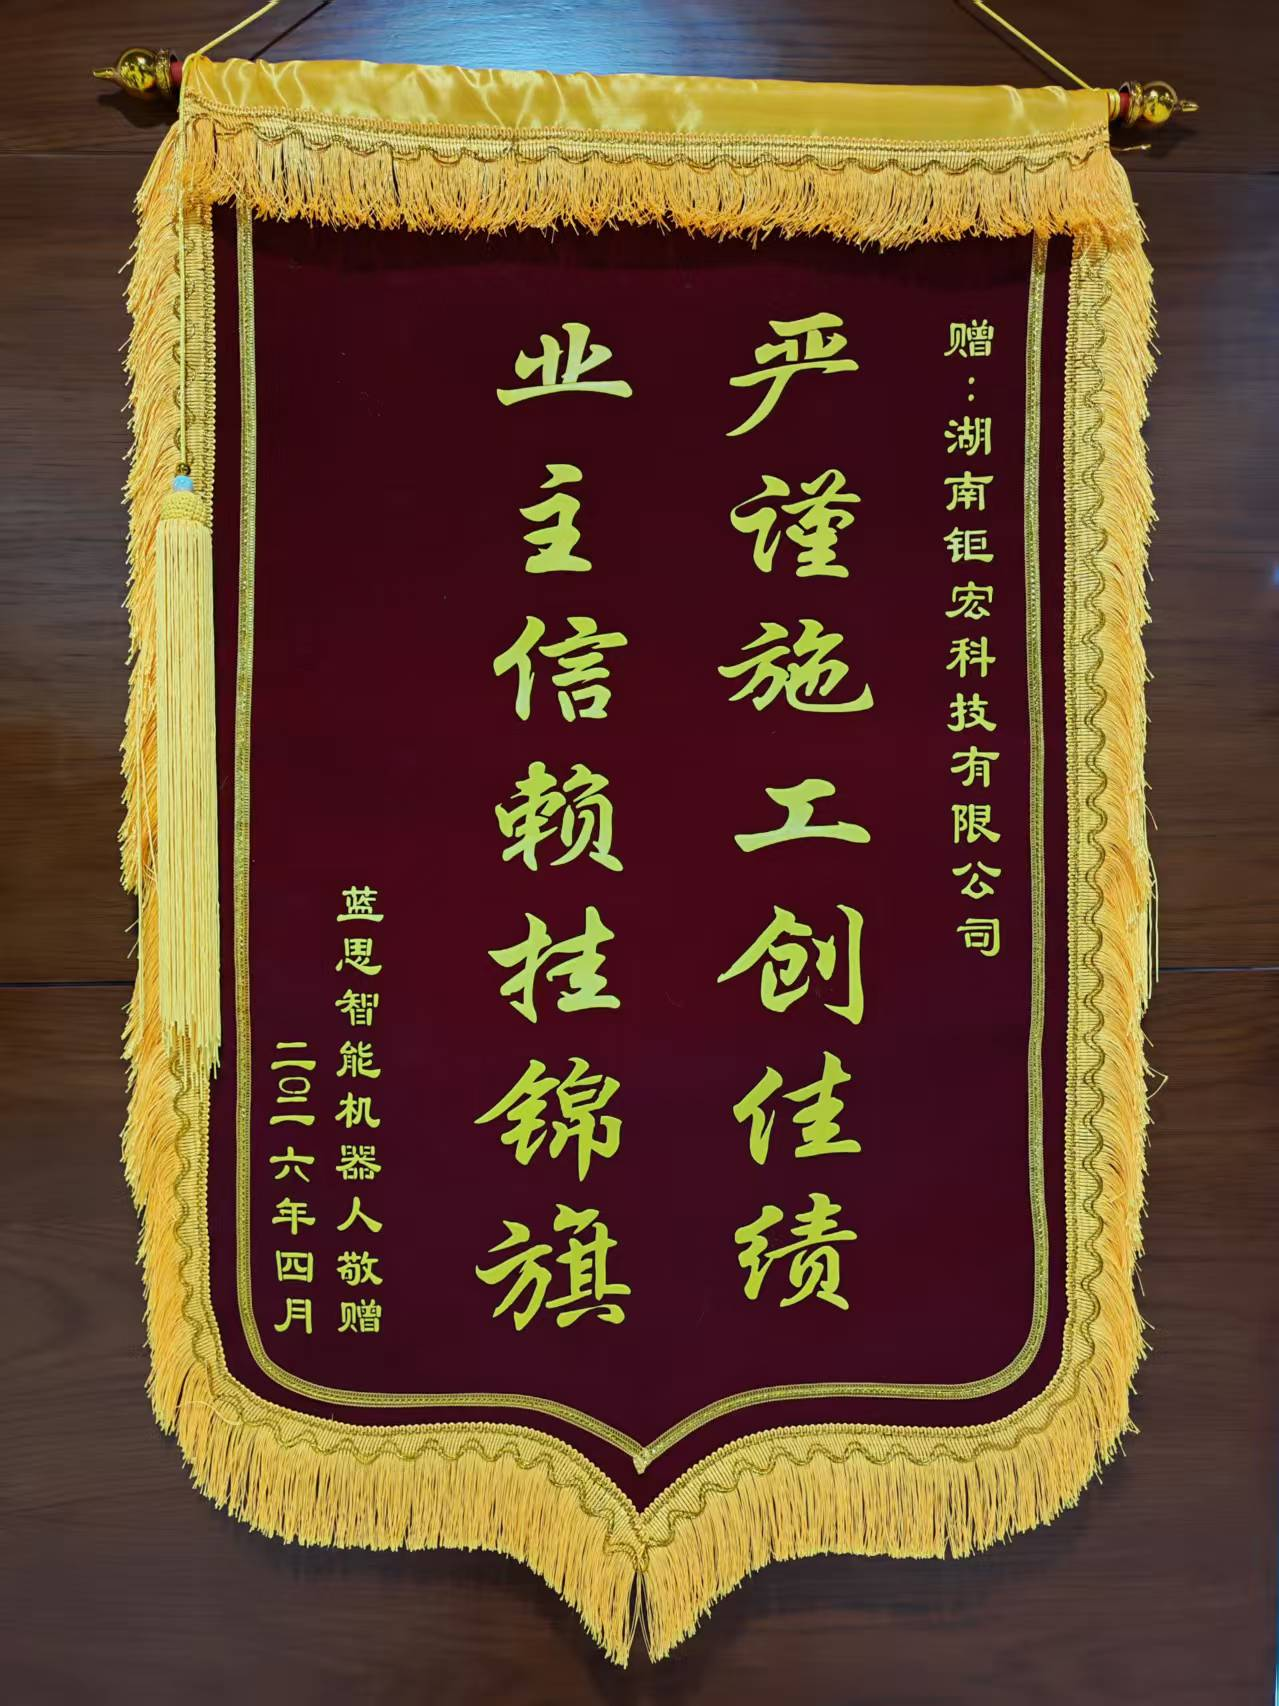 赠：湖南钜宏科技有限公司
严谨施工创佳绩
业主信赖挂锦旗
蓝思智能机器人敬赠
二〇二六年四月